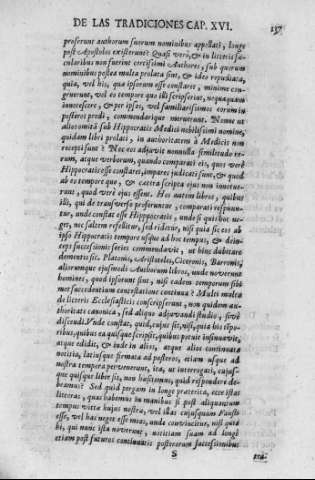 DE LAS TRADICIONES CAP. XVI. 137
proferunt authorum suorum nominibus appellati, longe
post Apostolos exstiterunt? Quasi verò, & in litteris sæ-
cularibus non fuerint certissimi Authores, sub quorum
nominibus postea multa prolata sunt, & ideo repudiata,
quia, vel his, quæ ipsorum esse constaret, minime con-
gruerunt, vel eo tempore quo illi scripserunt, nequaquam
innotescere, & per ipsos, vel familiarissimos eorum in
posteros prodi, commendarique meruerunt. Nonne ut
alios omittā sub Hippocratis Medici nobilissimi nomine,
quidam libri prolati, in authoritatem à Medicis non
recepti sunt? Nec eos adjuvit nonnulla similitudo re-
rum, atque verborum, quando comparati eis, quos verè
Hippocratis esse constaret, impares judicati sunt, & quod
ab eo tempore quo, & cætera scripta ejus non innotue-
runt, quod verè ejus essent. Hos autem libros, quibus
illi, qui de transverso proferuntur, comparati respuun-
tur, unde constat esse Hipppocratis, unde si quilibet ne-
ger, nec saltem refellitur, sed ridetur, nisi quia sic eos ab
ipso Hippocratis tempore usque ad hoc tempus, & dein-
ceps successionis series commendavit, ut hinc dubitare
dementis sit. Platonis, Aristotelis, Ciceronis, Barronis,
aliorumque ejusmodi Authorum libros, unde noverunt
homines, quod ipsorum sint, nisi eadem temporum sibi-
met succedentium contestatione continua? Multi multa
de litteris Ecclesiasticis conscripserunt, non quidem au-
thoritate canonica, sed aliquo adjuvandi studio, sive
discendi. Vnde constat, quid, cujus sit, nisi, quia his tēpo-
ribus, quibus ea quisque scripsit, quibus potuit insinuavit,
atque edidit, & inde in alios, atque alios continuata
notitia, latiusque firmata ad posteros, etiam usque ad
nostra tempora pervenerunt, ita, ut interrogati, cujus-
que quisque liber sit, non hæsitemus, quid respondere de-
beamus? Sed quid pergam in longe præterita, ecce istas
litteras, quas habemus in manibus si post aliquantum
tempus vitæ hujus nostræ, vel illas cujusquam Fausti
esse, vel has neget esse meas, unde convincitur, nisi quia
hi, qui nunc ista noverunt, notitiam suam ad longè
etiam post futuros continuatis posterorum successionibus
S